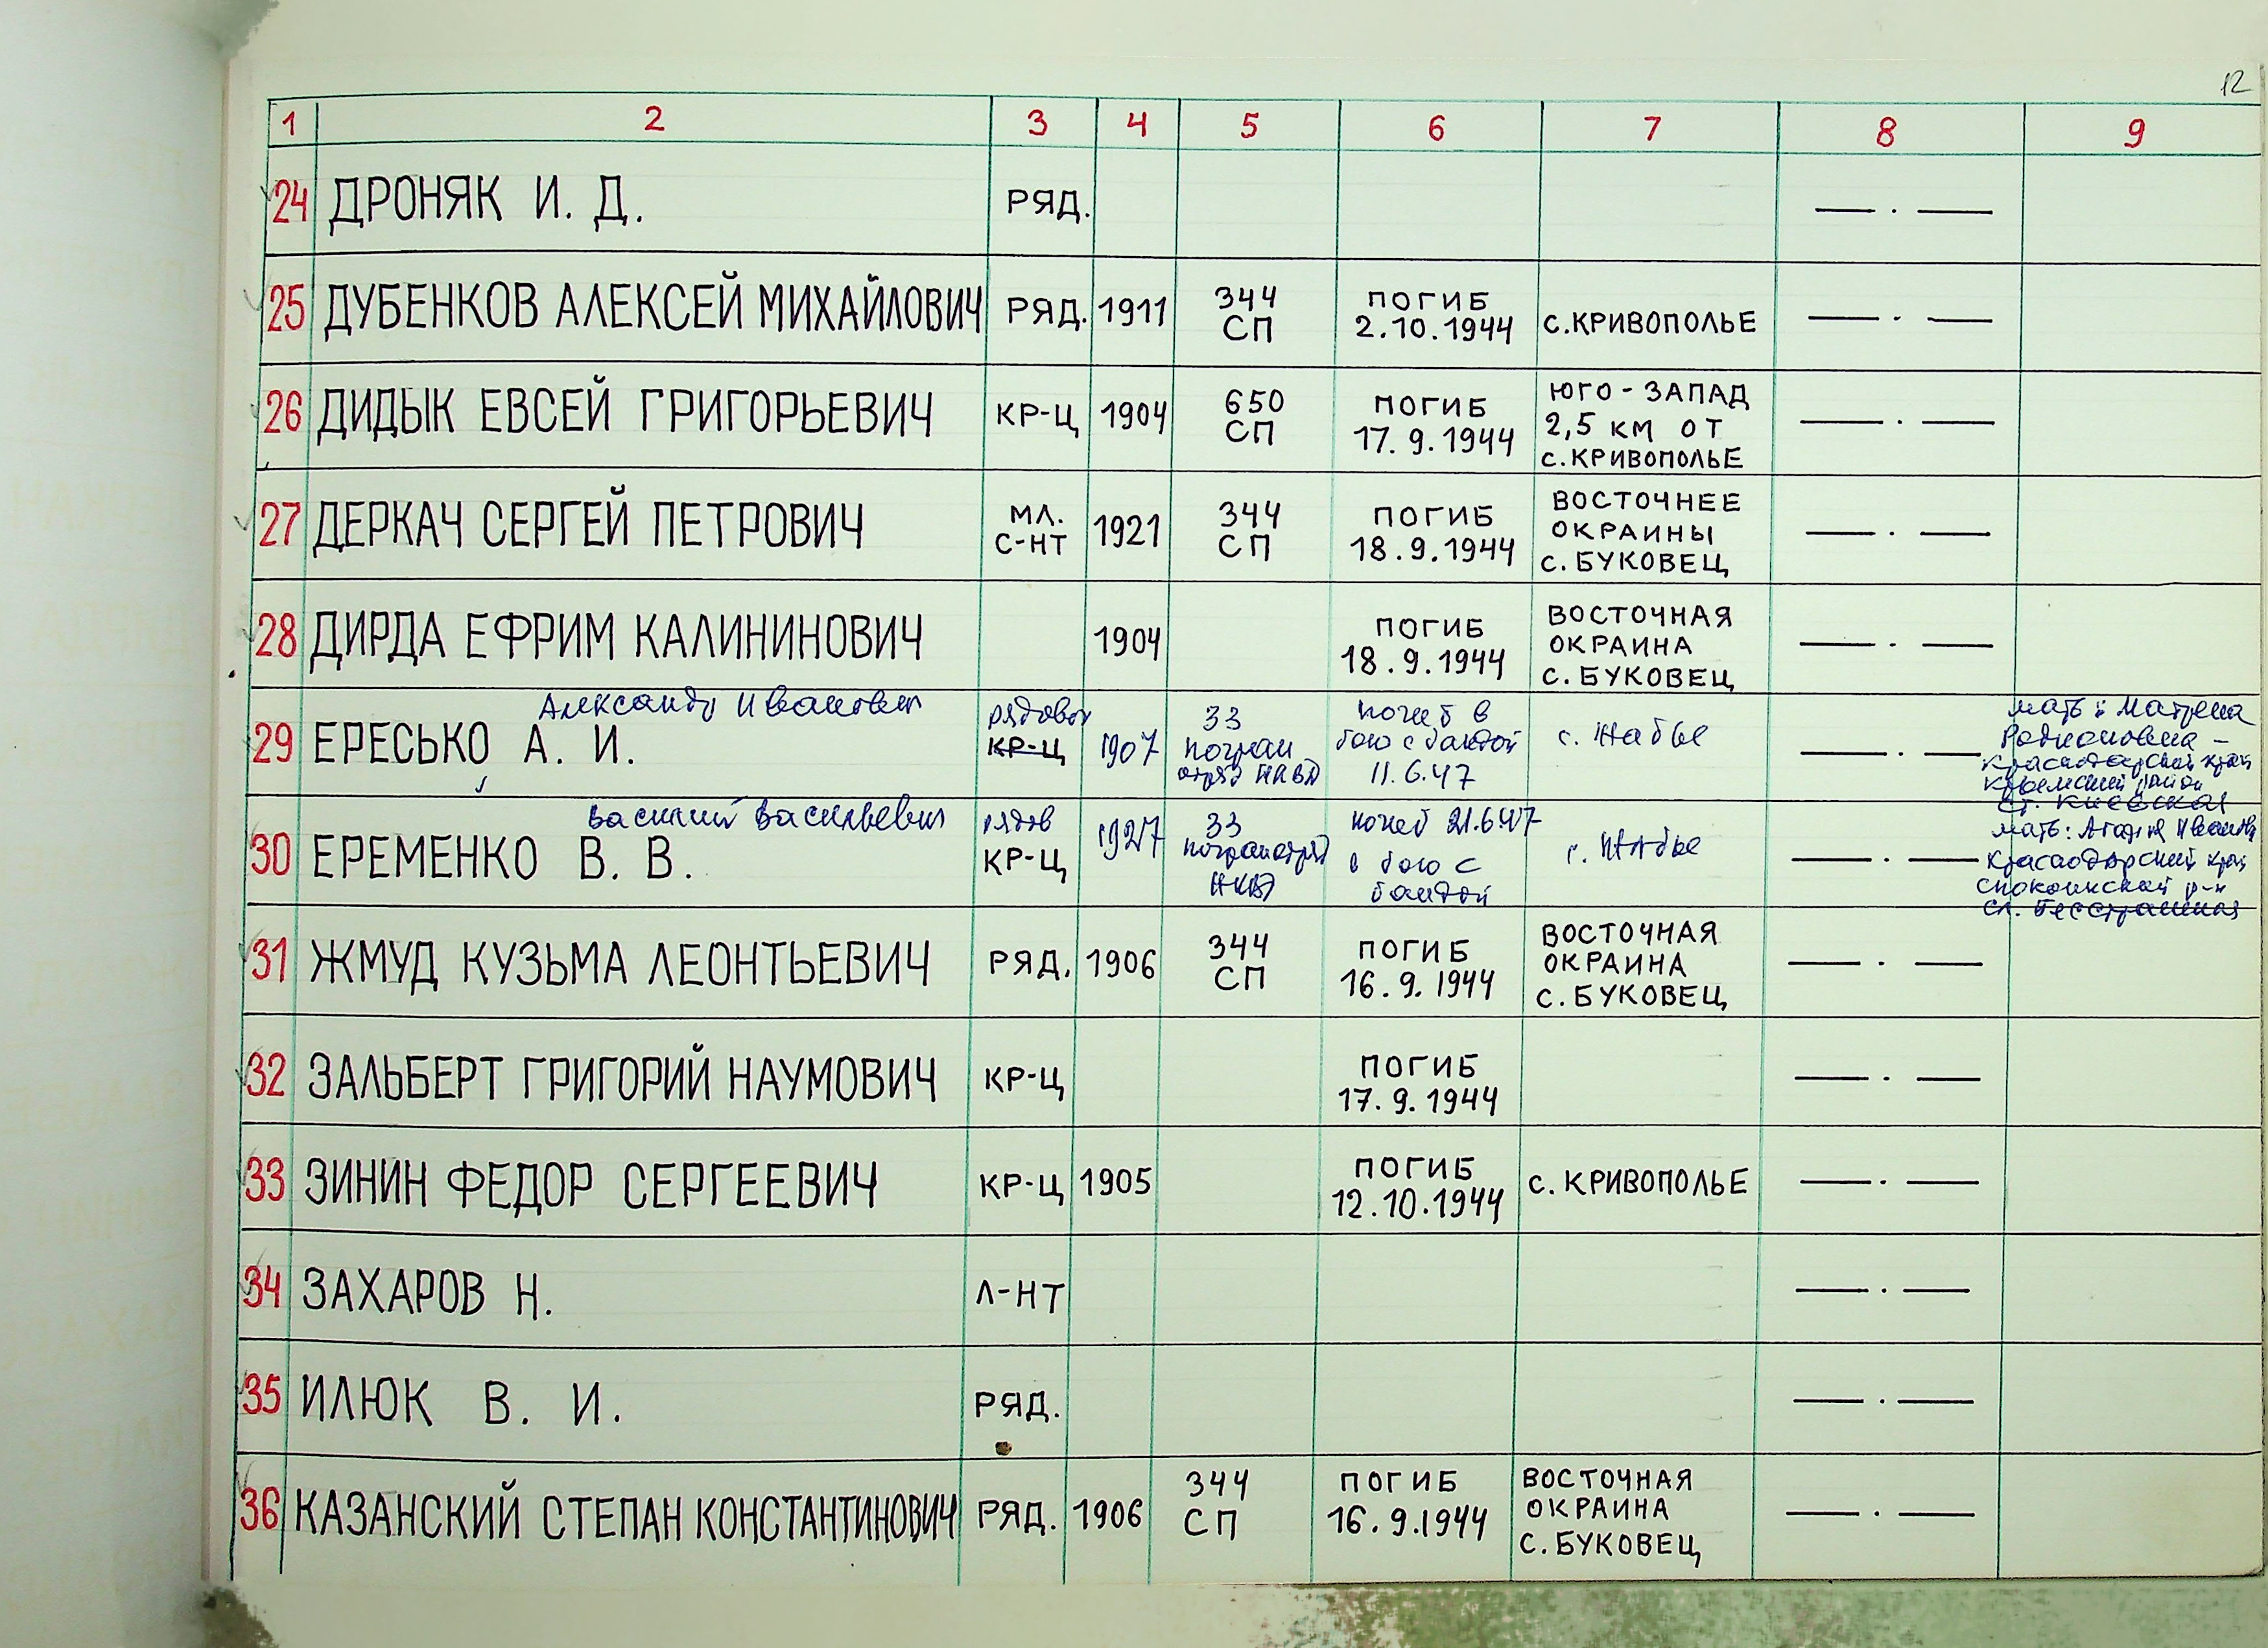 12
1 2 3 4 5 6 7 8 9
24 ДРОНЯК И. Д. РЯД. — . —
25 ДУБЕНКОВ АЛЕКСЕЙ МИХАЙЛОВИЧ РЯД. 1911 344 СП ПОГИБ 2.10.1944 С.КРИВОПОЛЬЕ — . —
26 ДИДЫК ЕВСЕЙ ГРИГОРЬЕВИЧ КР-Ц 1904 650 СП ПОГИБ 17.9.1944 ЮГО-ЗАПАД 2,5 КМ ОТ С.КРИВОПОЛЬЕ — . —
27 ДЕРКАЧ СЕРГЕЙ ПЕТРОВИЧ МЛ. С-НТ 1921 344 СП ПОГИБ 18.9.1944 ВОСТОЧНЕЕ ОКРАИНЫ С.БУКОВЕЦ — . —
28 ДИРДА ЕФРИМ КАЛИНИНОВИЧ 1904 ПОГИБ 18.9.1944 ВОСТОЧНАЯ ОКРАИНА С.БУКОВЕЦ — . —
Александр Иванович
29 ЕРЕСЬКО А. И. рядовой КР-Ц 1907 33 погран отряд НКВД погиб в бою с бандой 11.6.47 с. Жабье — . — мать: Матрена Родионовна - Краснодарский край Крымский район ст. Киевская
Василий Васильевич
30 ЕРЕМЕНКО В. В. рядов КР-Ц 1927 33 погранотряд НКВД погиб 21.6.47 в бою с бандой с. Жабье — . — мать: Агафья Ивановна Краснодарский край Спокоинский р-н ст. Бесстрашная
31 ЖМУД КУЗЬМА ЛЕОНТЬЕВИЧ РЯД. 1906 344 СП ПОГИБ 16.9.1944 ВОСТОЧНАЯ ОКРАИНА С.БУКОВЕЦ — . —
32 ЗАЛЬБЕРТ ГРИГОРИЙ НАУМОВИЧ КР-Ц ПОГИБ 17.9.1944 — . —
33 ЗИНИН ФЕДОР СЕРГЕЕВИЧ КР-Ц 1905 ПОГИБ 12.10.1944 С.КРИВОПОЛЬЕ — . —
34 ЗАХАРОВ Н. Л-НТ — . —
35 ИЛЮК В. И. РЯД. — . —
36 КАЗАНСКИЙ СТЕПАН КОНСТАНТИНОВИЧ РЯД. 1906 344 СП ПОГИБ 16.9.1944 ВОСТОЧНАЯ ОКРАИНА С.БУКОВЕЦ — . —